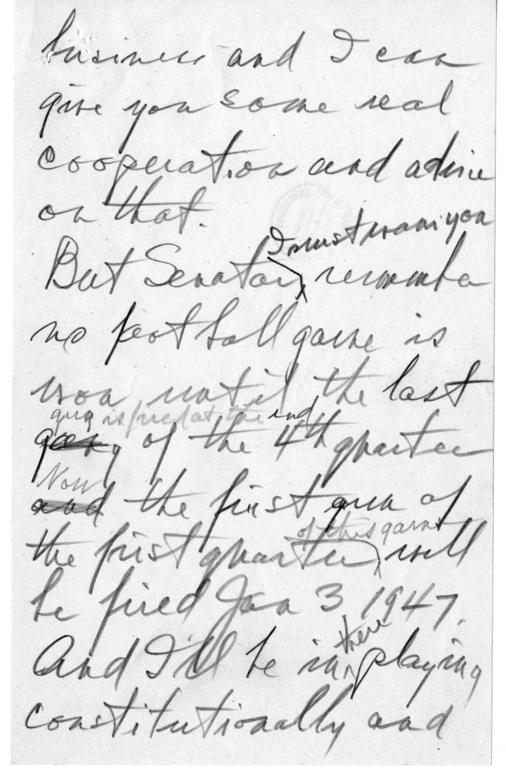 business and I can
give you some real
cooperation and advice
on that.
I must warn you
But Senator, remember
no football game is
won until the last
gun is fired at the end
of the 4th quarter
Now
and the first gun of
of this game
the first quarter will
be fired Jan 3 1947.
there
And I'll be in playing
constitutionally and